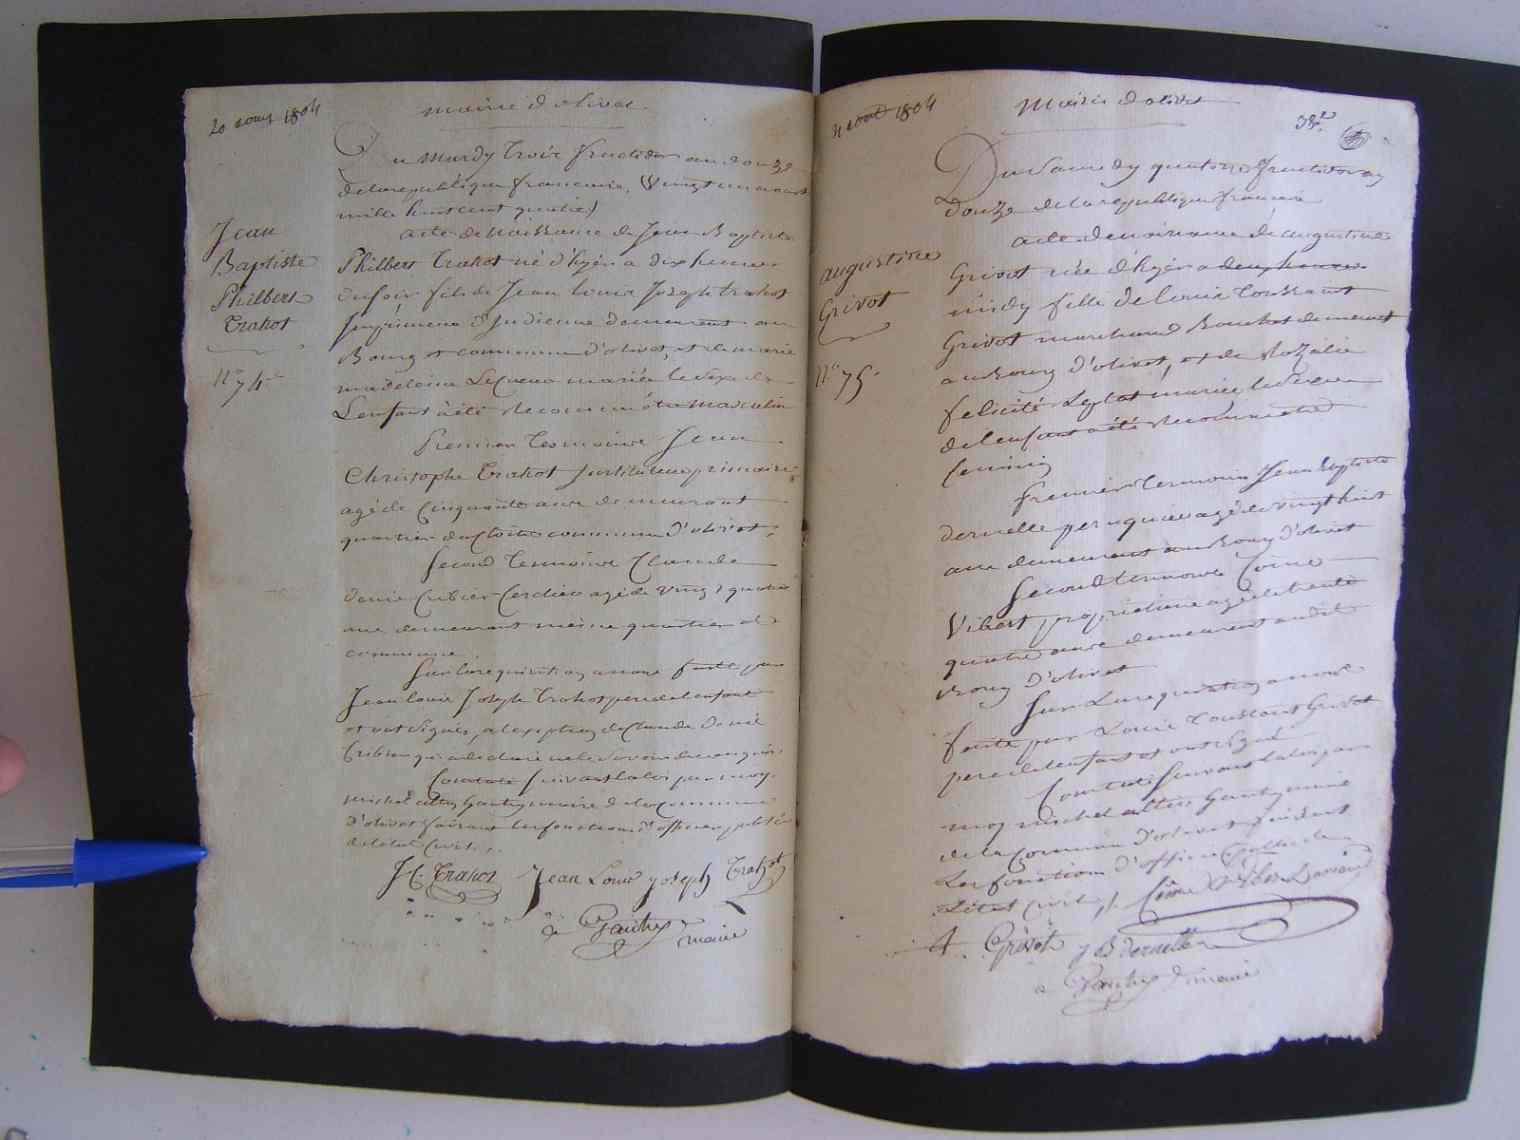 20 aout 1804
mairie d'olivet
Du Mardy trois fructidor an douze
de la republique francaise, (Vingt un aout
mille huit cent quatre)
Jean
Baptiste
Philbert
Trahot
N° 74
acte de naissance de Jean Baptiste
Philbert Trahot né d'hyer a dix heures
du soir fils de Jean Louis Joseph trahot
Imprimeur d'Indienne demeurant au
Bourg et commune d'olivet, et de marie
madeleine Lecoeur mariés le sexe de
L'enfant à été reconnu être masculin
Premier Temoin Jean
Christophe Trahot Instituteur primaire
agé de Cinquante ans demeurant
quartier du Cloitre commune d'olivet,
Second Temoin Claude
Denis Cribier Cerclier agé de vingt quatre
ans demeurant même quartier et
commune.
Sur la requisition a nous faitte par
Jean louis Joseph Trahot pere de l'enfant
et ont signés, a l'exeption de Claude Denis
Cribier qui a declaré ne le savoir de ce enquis.
Constaté suivant la loi par moy
michel altin Gautry maire de la Commune
d'olivet faisant les fonctions d'officier public
de l'etat Civil,.
J C Trahot Jean Louis joseph Trahot
Gautry
maire
21 aout 1804
Mairie d'olivet
38e
Du Samedy quatorze fructidor an
douze de la republique francaise
augustine
Grivot
N° 75
acte de naissance de augustine
Grivot née d'hyer a deux heures
midy fille de louis Toussaint
Grivot marchand Boucher demeurant
au Bourg d'olivet, et de Rozalie
felicité mariés le sexe
de l'enfant a été reconnu etre
feminin
Premier Temoin Jean Baptiste
dernelle perruquier agé de vingt huit
ans demeurant au Bourg d'olivet
Second temoin Côme
Vibert proprietaire agé de trente
quatre ans demeurant au dit
Bourg d'olivet
Sur La requisition a nous
faitte par Louis Toussaint Grivot
pere de l'enfant et ont signé
Constaté suivant la loi par
moy michel altin Gautry maire
de la Commune d'olivet faisant
Les fonctions d'officier public de
L'etat Civil,. Côme
Grivot J B dernelle
Gautry maire